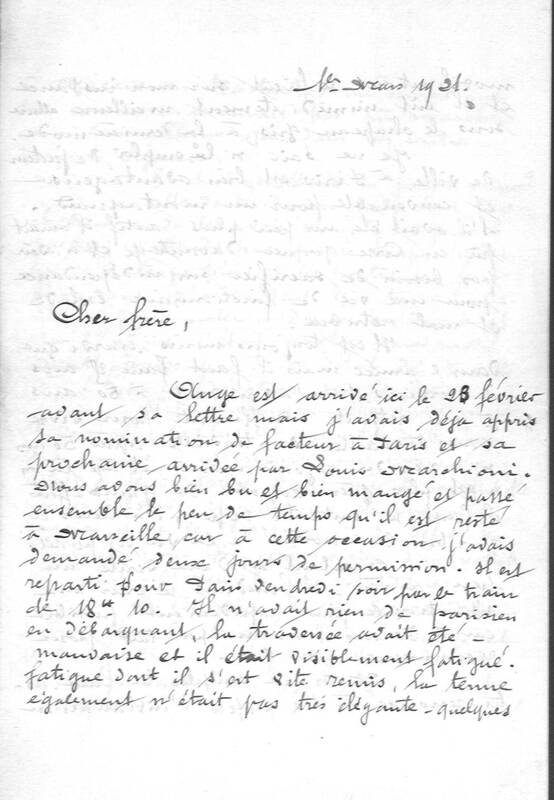 Mars 1921.
Cher frère,
Ange est arrivé ici le 23 février
avant sa lettre mais j'avais déja appris
sa nomination de facteur à Paris et sa
prochaine arrivée par Louis Marchioni.
Nous avons bien bu et bien mangé et passé
ensemble le peu de temps qu'il est resté
à Marseille car à cette occasion j'avais
demandé deux jours de permission. Il est
reparti pour Paris vendredi soir par le train
de 18h 10. Il n'avait rien de parisien
en débarquant, la traversée avait été
mauvaise et il était visiblement fatigué.
fatigue dont il s'est vite remis, la tenue
également n'était pas très élégante - quelques